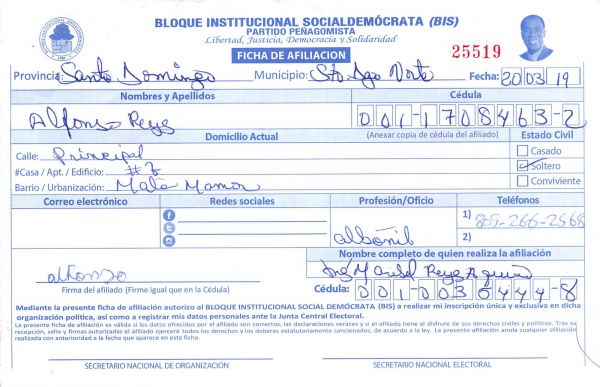 BLOQUE INSTITUCIONAL SOCIALDEMÓCRATA (BIS)
PARTIDO PEÑAGOMISTA
Libertad, Justicia, Democracia y Solidaridad
FICHA DE AFILIACION
25519
Provincia: Santo Domingo Municipio: Sto Dgo Norte Fecha: 20 03 19
Nombres y Apellidos Cédula
Alfonso Reye 001-1708463-2
Domicilio Actual (Anexar copia de cédula del afiliado) Estado Civil
Calle: Principal Casado
#Casa / Apt. / Edificio: Soltero
Barrio / Urbanización: Mata Mamon Conviviente
Correo electrónico Redes sociales Profesión/Oficio Teléfonos
1) 809-266-2568
albañil 2)
Nombre completo de quien realiza la afiliación
alfonso Marisol Reye Aquino
Firma del afiliado (Firme igual que en la Cédula) Cédula: 001-0036444-8
Mediante la presente ficha de afiliación autorizo al BLOQUE INSTITUCIONAL SOCIAL DEMÓCRATA (BIS) a realizar mi inscripción única y exclusiva en dicha
organización política, así como a registrar mis datos personales ante la Junta Central Electoral.
La presente ficha de afiliación es válida si los datos ofrecidos por el afiliado son correctos, las declaraciones veraces y si el afiliado tiene el disfrute de sus derechos civiles y políticos. Tras su
recepción, sello y firmas autorizadas el afiliado ejercerá todos los derechos y los deberes estatutariamente sancionados, de acuerdo a la ley. La presente afiliación anula cualquier afiliación
realizada con anterioridad a la fecha que aparece en esta ficha.
SECRETARIO NACIONAL DE ORGANIZACIÓN SECRETARIO NACIONAL ELECTORAL